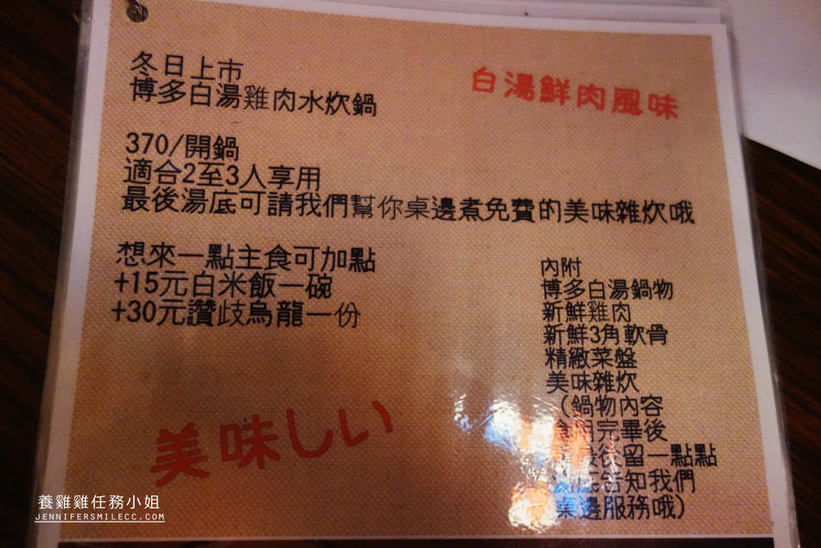 冬日上市
博多白湯雞肉水炊鍋
白湯鮮肉風味
370/開鍋
適合2至3人享用
最後湯底可請我們幫你桌邊煮免費的美味雜炊哦
想來一點主食可加點
+15元白米飯一碗
+30元讚歧烏龍一份
內附
博多白湯鍋物
新鮮雞肉
新鮮3角軟骨
精緻菜盤
美味雜炊
(鍋物內容
食用完畢後
最後留一點點
告知我們
桌邊服務哦)
美味しい
養雞雞任務小姐
JENNIFERSMILECC.COM